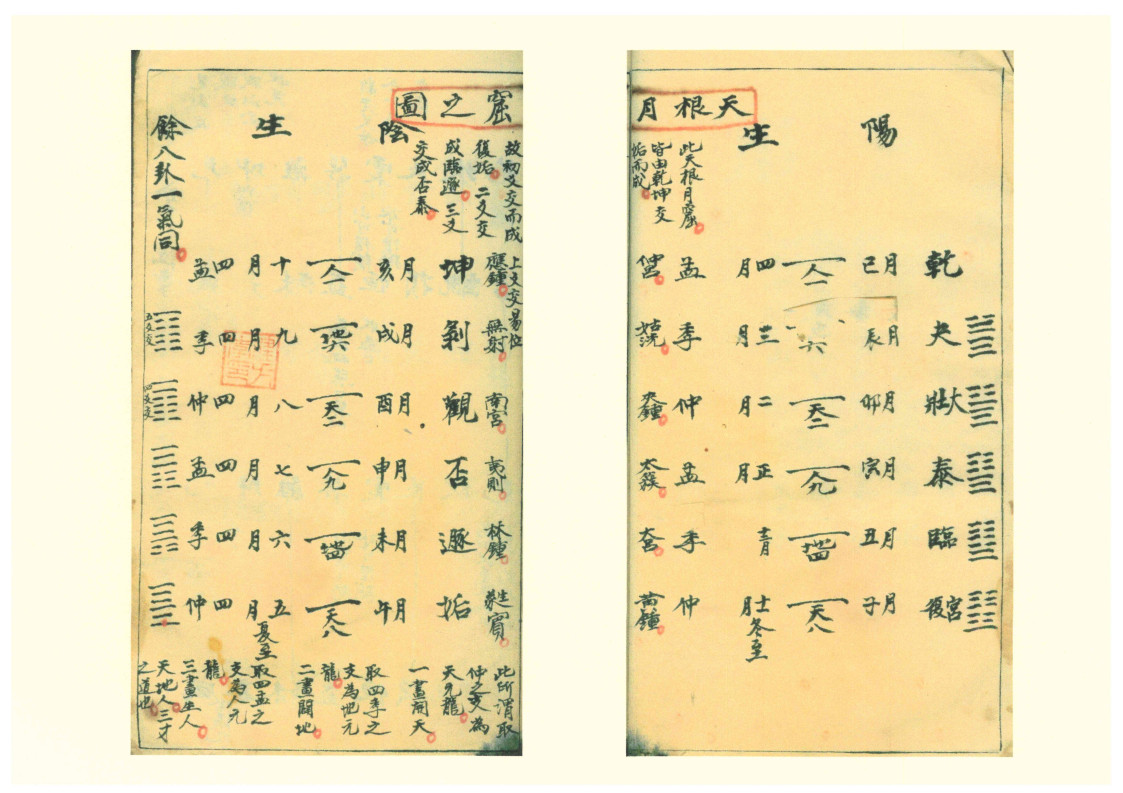 天根月
陽生
乾
夬
大壯
泰
臨
復宮
巳月
辰月
卯月
寅月
丑月
子月
人一
六
天二
人九
地四
天八
四月
三月
二月
正月
十二月
十一月
冬至
孟
季
仲
孟
季
仲
此天根月窟
皆由乾坤交
姤而成
仲宮
姑洗
夾鍾
太簇
大宮
黃鍾
窟之圖
陰生
故初爻交而成
復姤 二爻交
成臨遯 三爻
交成否泰
上爻交易位
應鍾
無射
南宮
夷則
林鍾
蕤賓
坤
剝
觀
否
遯
姤
亥月
戌月
酉月
申月
未月
午月
人一
地六
天二
人九
地四
天八
十月
九月
八月
七月
六月
五月
夏至
四孟
四季
四仲
四孟
四季
四仲
餘八卦一氣同
五爻交
四爻交
此所謂取
仲之支為
天元龍
一畫開天
取四季之
支為地元
龍
二畫闢地
取四孟之
支為人元
龍
三畫生人
天地人三才
之道也